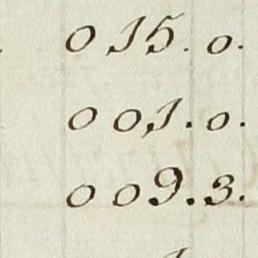 0 15. 0.
0 01. 0.
0 09. 3.